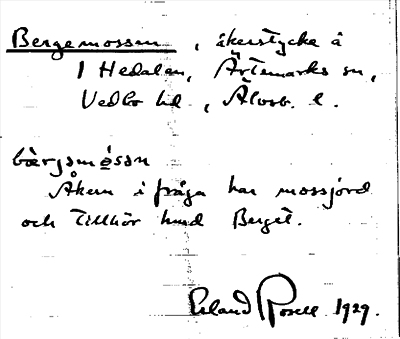 Bergemossen, åkerstycke å
1 Hedalen, Ärtemarks sn,
Vedbo hd, Älvsb. l.
bærjəmòsən
Åkern i fråga har mossjord
och tillhör hmd Berget.
Erland Rosell 1929.